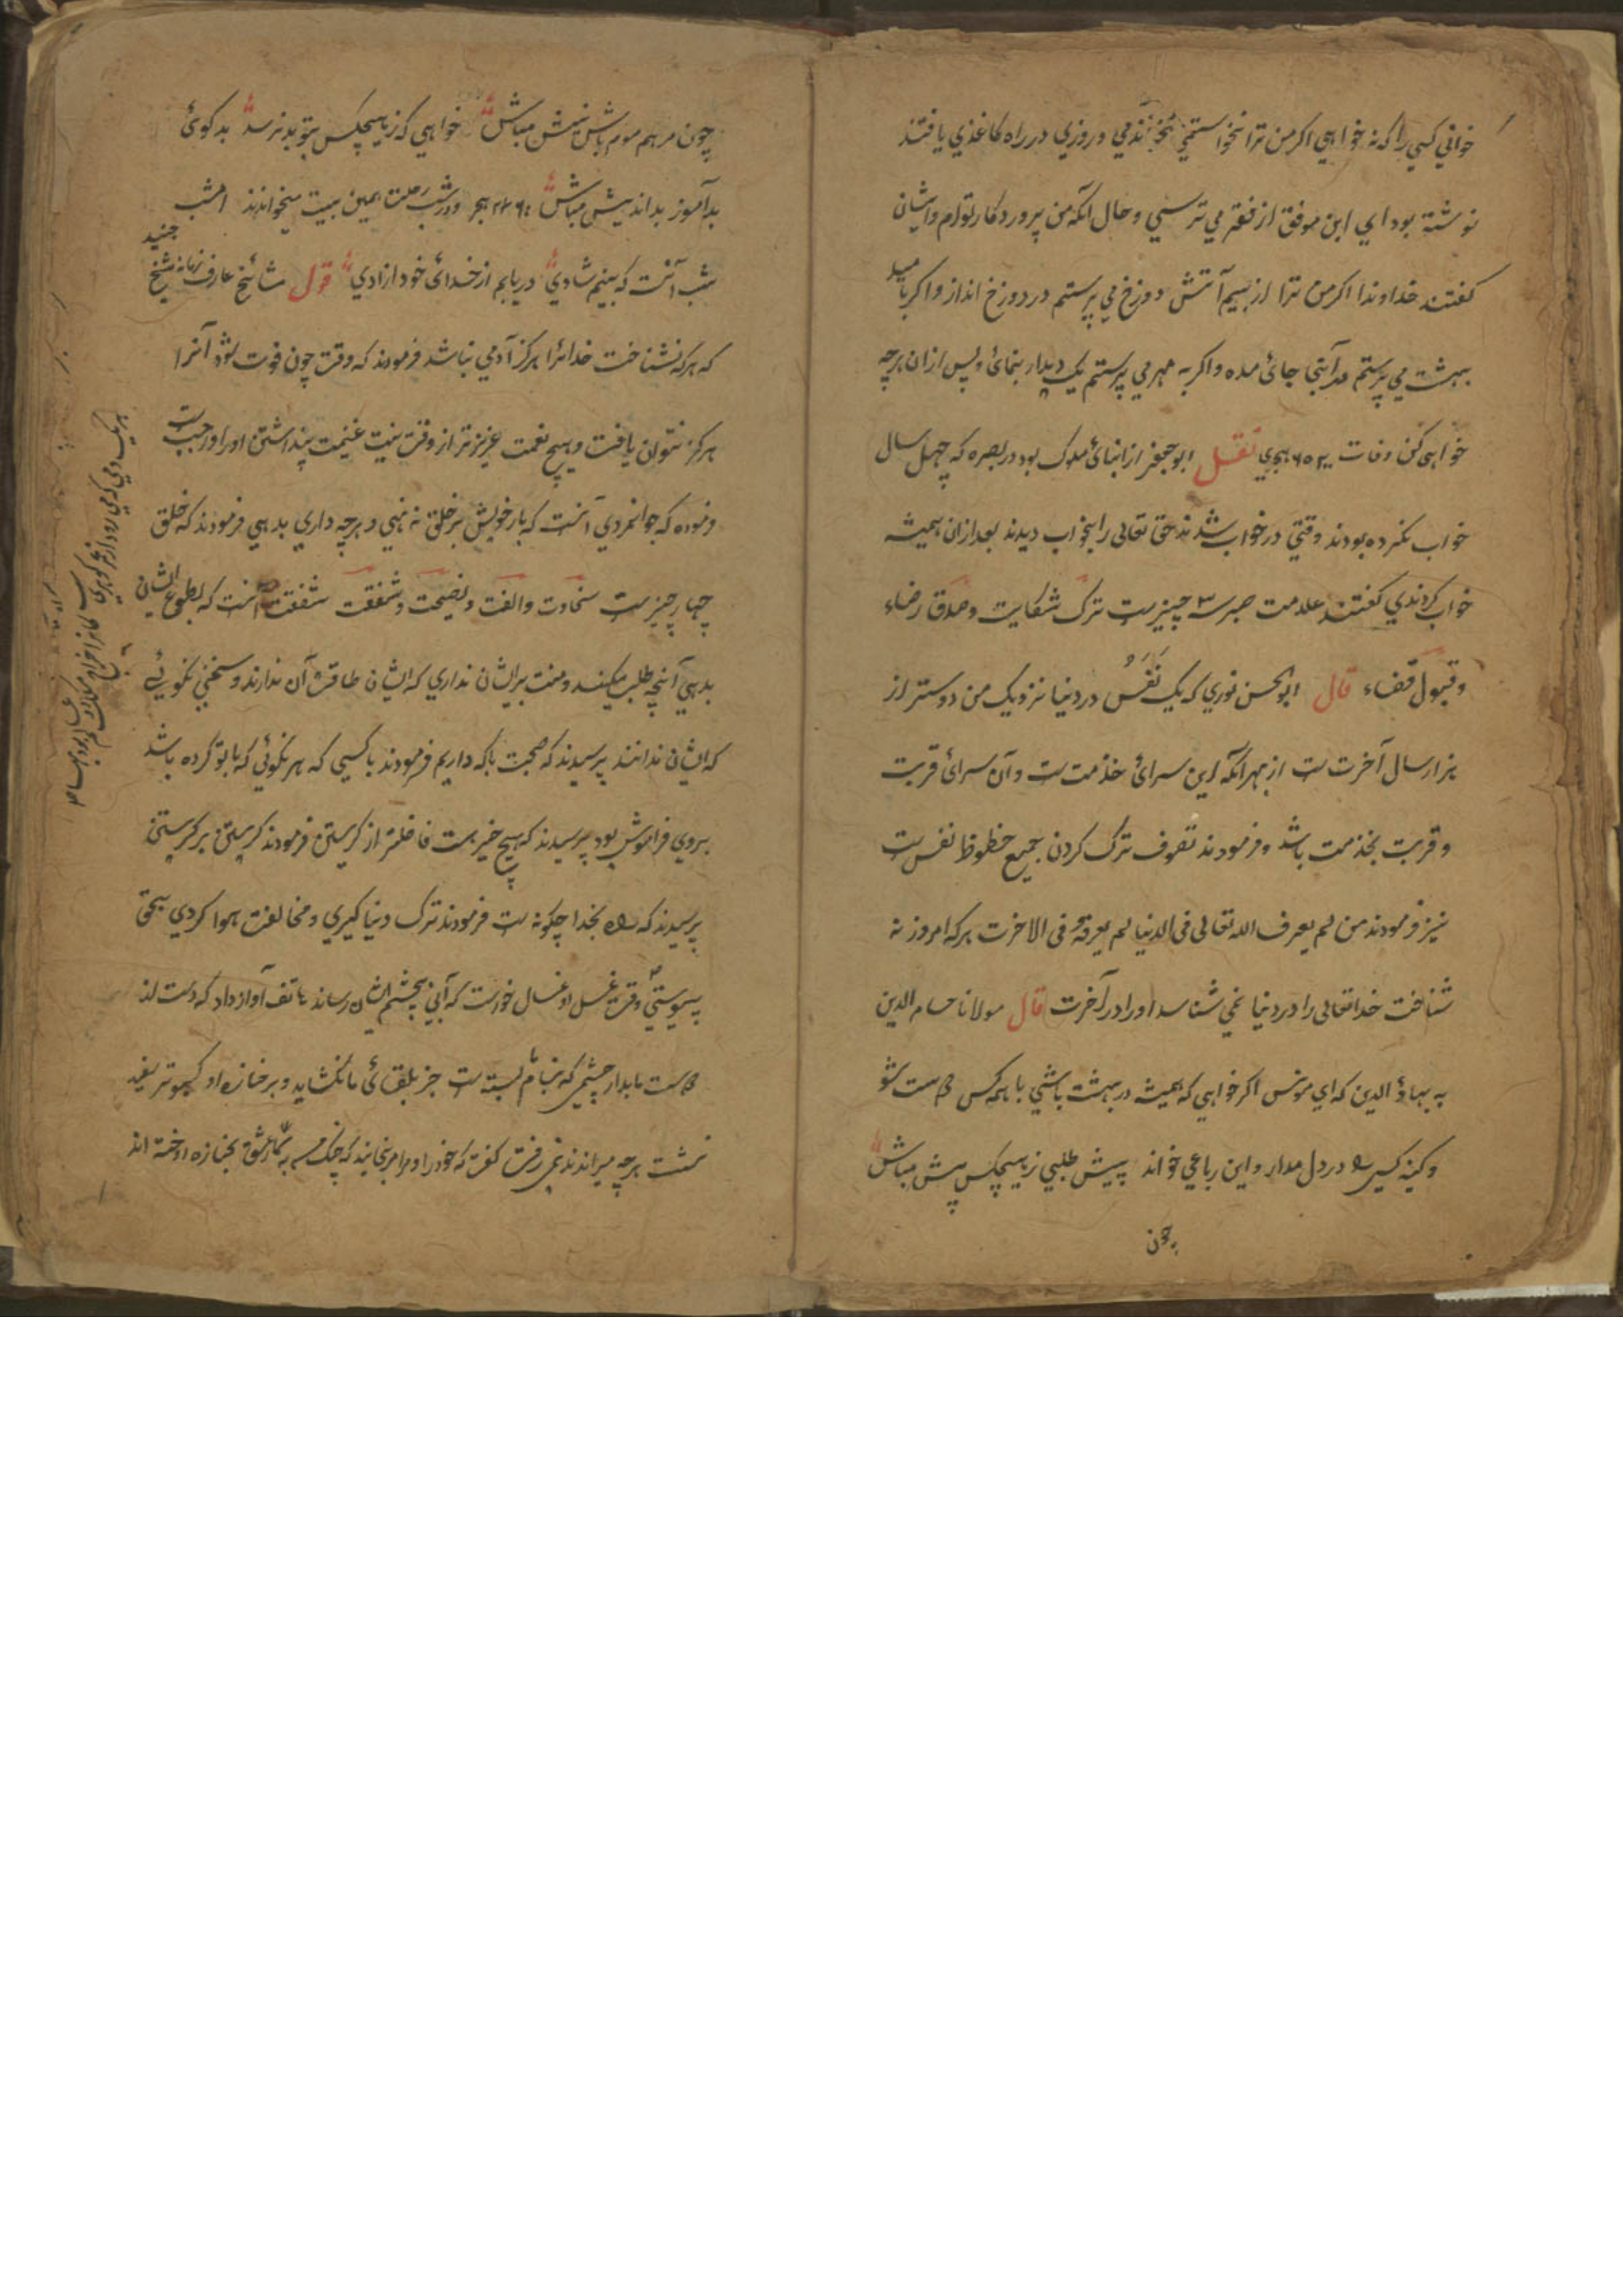 خواني كسي را كه نه خواهي اكر من ترا نخواستمي نخواندمي و روزي در راه كاغذي يافتند
نوشته بود اي ابن موفق از فقر مي ترسي و حال آنكه من پروردكار توام و ايشان
كفتند خداوندا اكر من ترا از بيم آتش دوزخ مي پرستم در دوزخ انداز و اكر باميد
بهشت مي پرستم جائ مده و اكر به مهر مي پرستم يك ديدار بنمائ و پس از ان هرچه
خواهي كن وفات هجري نقل ابوجعفر از ابنائ ملوك بود در بصره كه چهل سال
خواب نكرده بودند وقتي در خواب شدند حق تعالى را بخواب ديدند بعد از ان هميشه
خواب كردندي كفتند علامت صبر ٣ چيزست ترك شكايت و صدق رضاء
و قبول قضاء قال ابوالحسن نوري كه يك نَفَس در دنيا نزديك من دوستر از
هزار سال آخرت ست از بهر آنكه اين سرائ خدمت ست و آن سرائ قربت
و قربت بخدمت باشد و فرمودند تصوف ترك كردن جميع حظوظ نفس ست
نيز فرمودند من لم يعرف الله تعالى فى الدنيا لم يعرفه فى الاخرت هركه امروز نه
شناخت خدا تعالى را در دنيا نمي شناسد او را در آخرت قال مولانا حسام الدين
به بهاؤ الدين كه اي مونس اكر خواهي كه هميشه در بهشت باشي با همه كس دوست شو
و كينه كسي را در دل مدار و اين رباعي خواند پيش طلبي ز هيچكس پيش مباش
چون
چون مرهم موم باش نيش مباش خواهي كه ز هيچكس بتو بد نرسد بدكوئ
بدآموز بدانديش مباش هجر و در شب رحلت همين بيت ميخواندند امشب
شب آنست كه بينم شادي دريابم از خدائ خود ازادي قول مشائخ عارف زمانه شيخ جنيد
كه هركه نشناخت خدائرا هركز آدمي نباشد فرمودند كه وقت چون فوت شود آنرا
هركز نتوان يافت و هيچ نعمت عزيزتر از وقت نيست غنيمت پنداشتن او را واجبست
فرموده كه جوانمردي آنست كه بار خويش بر خلق نه نهي و هرچه داري بدهي فرمودند كه خلق
چهار چيزست سخاوت و الفت و نصيحت و شفقت شفقت آنست كه بطوع ايشان
بدهي آنچه طلب ميكنند و منت بر ايشان نداري كه ايشان طاقت آن ندارند و سخني نكوئي
كه ايشان ندانند پرسيدند كه صحبت با كه داريم فرمودند با كسي كه هر نكوئي كه با تو كرده باشد
بروي فراموش بود پرسيدند كه هيچ خير هست فاضلتر از كريستن فرمودند كريستن بر كريستن
پرسيدند كه راه بخدا چكونه ست فرمودند ترك دنيا كيري و مخالفت هوا كردي بحق
پيوستي وقت غسل او غسال خواست كه آبي بچشم ايشان رساند هاتف آواز داد كه دست از
دوست ما بدار چشمي كه بنام ما بسته ست جز بلقائ ما نكشايد و بر جنازه او كبوتر سفيد
نشست هرچه ميراندند نمي رفت كفت كه خود را و مرا مرنجانيد كه چنك من به مسمار عشق بجنازه دوخته اند
هر يك دمي كه مي رود از عمر كوهري ست